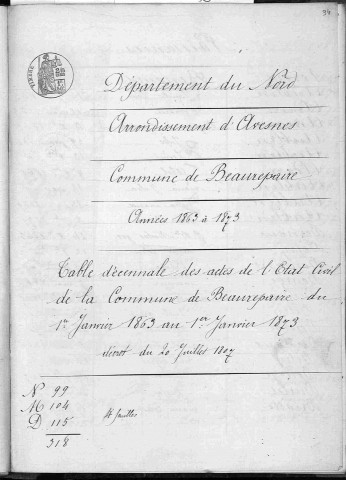 94
Département du Nord
Arrondissement d'Avesnes
Commune de Beaurepaire
Années 1863 à 1873
Table décennale des actes de l'Etat Civil
de la Commune de Beaurepaire du
1er Janvier 1863 au 1er Janvier 1873
décret du 20 Juillet 1807
N 99
M 104
D 115
318
4 feuilles